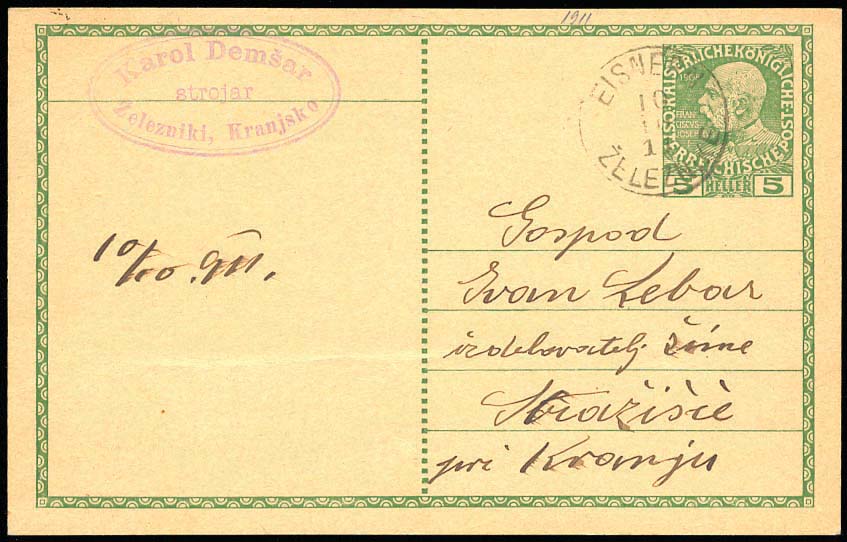 1911
Karol Demšar
strojar
Železniki, Kranjsko
EISNE
10
1
ŽELEZ
KAISERLICHEKÖNIGLICHE
ÖSTERREICHISCHEPOST
1908
FRAN
CISCVS
JOSEPH
5 HELLER 5
10/10. 911.
Gospod
Ivan Lebar
izdelovatelj žime
Stražišče
pri Kranju